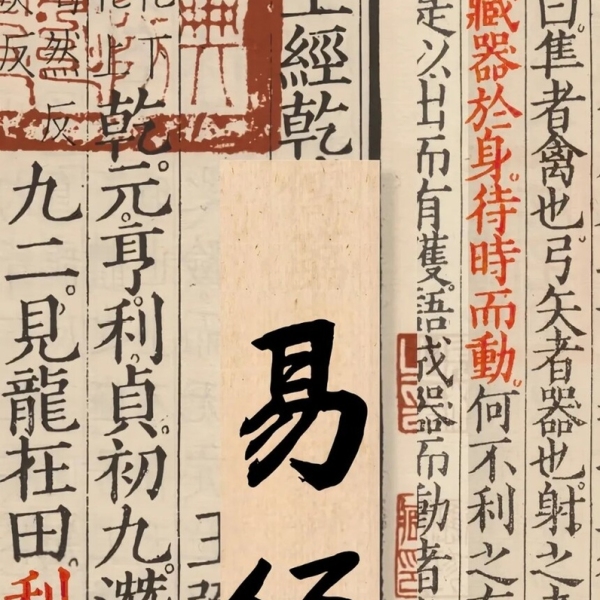 曰。隼者禽也。弓矢者器也。射之者
藏器於身。待時而動。何不利之有
是以出而有獲。語成器而動者
易
上經乾
乾。元。亨。利。貞。初九。潛
九二。見龍在田。利